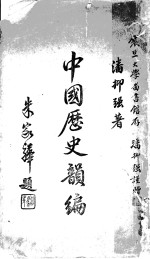 復旦大學圖書館存
潘抑強著
中國歷史韻編
朱家驊題